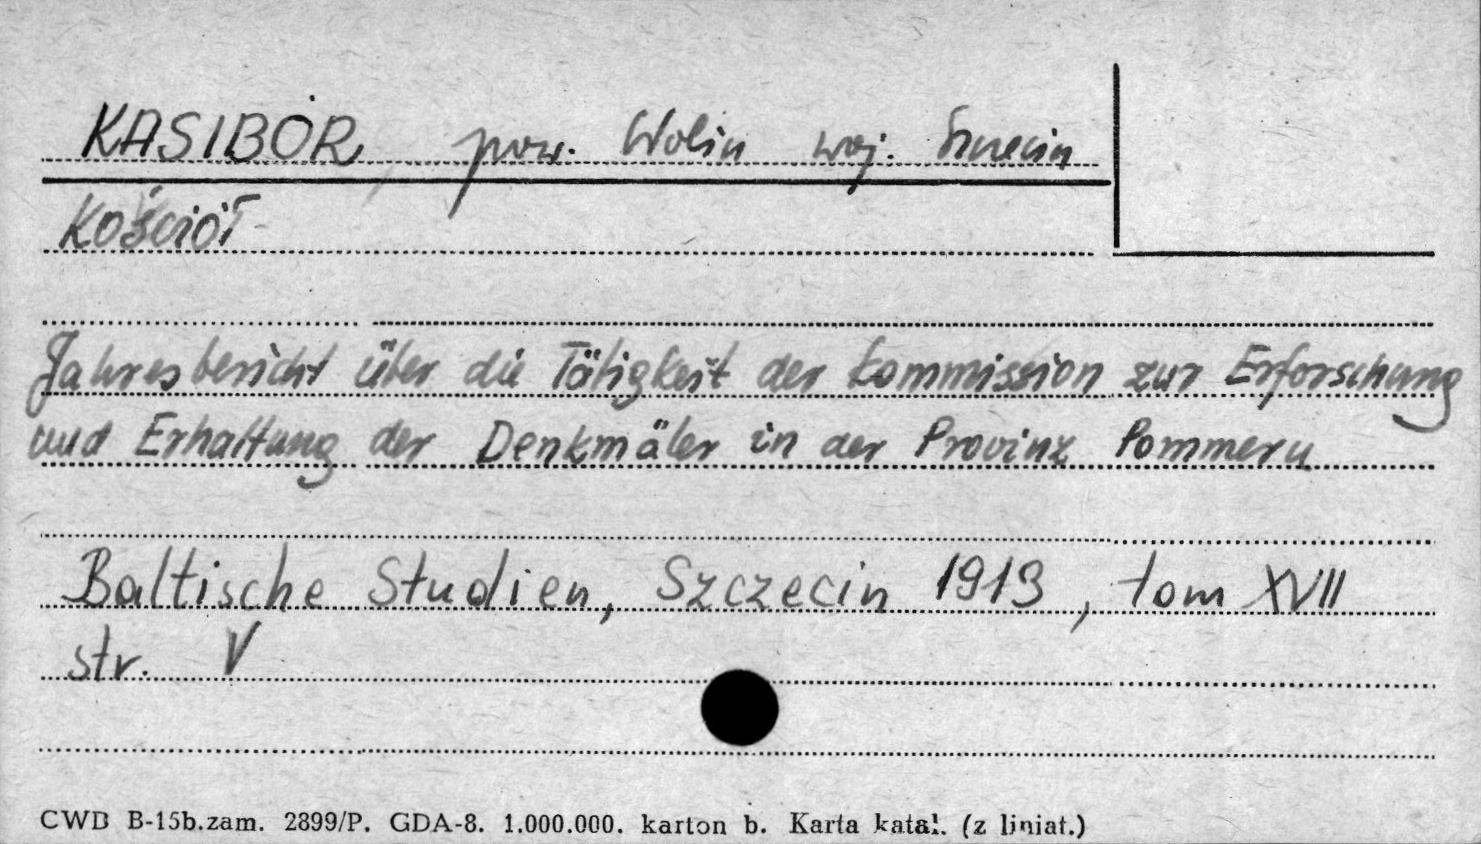 KASIBÓR pow. Wolin woj. Szczecin
KOŚCIÓŁ
Jahresbericht über die Tätigkeit der Kommission zur Erforschung
und Erhaltung der Denkmäler in der Provinz Pommern
Baltische Studien, Szczecin 1913, tom XVII
str. V
CWD B-15b.zam. 2899/P. GDA-8. 1.000.000. karton b. Karta katal. (z liniat.)